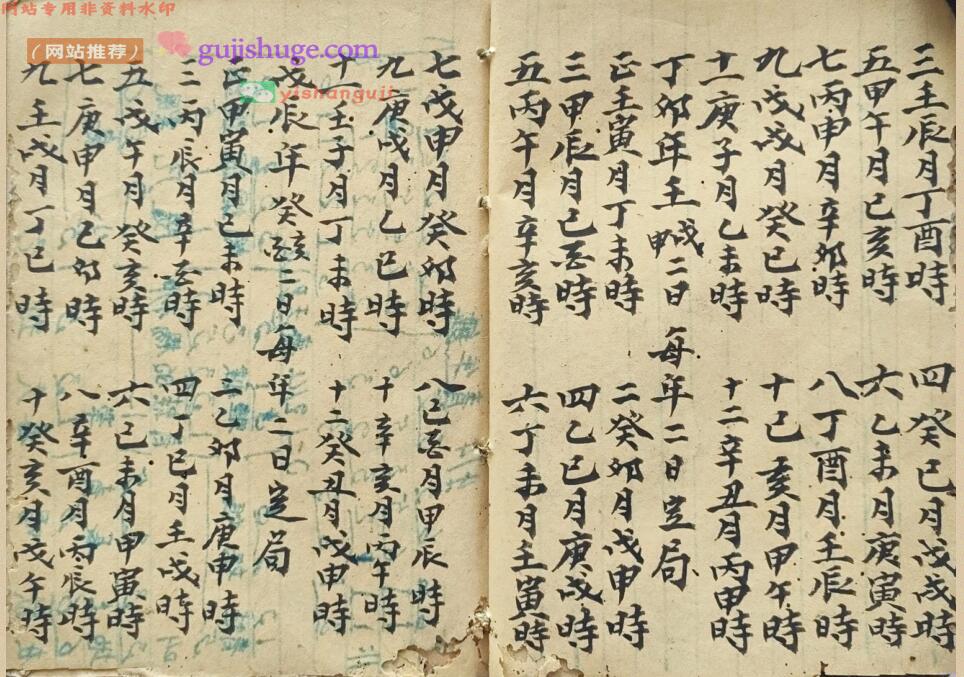 网站专用非资料水印
(网站推荐)
gujishuge.com
yishanguji
三壬辰月丁酉時 四癸巳月戊戌時
五甲午月己亥時 六乙未月庚寅時
七丙申月辛卯時 八丁酉月壬辰時
九戊戌月癸巳時 十己亥月甲午時
十一庚子月乙未時 十二辛丑月丙申時
丁卯年壬戌申二日 每年二日定局
正壬寅月丁未時 二癸卯月戊申時
三甲辰月己酉時 四乙巳月庚戌時
五丙午月辛亥時 六丁未月壬寅時
七戊申月癸卯時 八己酉月甲辰時
九庚戌月乙巳時 十辛亥月丙午時
十一壬子月丁未時 十二癸丑月戊申時
戊辰年癸亥酉二日每年二日定局
正甲寅月己未時 二乙卯月庚申時
三丙辰月辛酉時 四丁巳月壬戌時
五戊午月癸亥時 六己未月甲寅時
七庚申月乙卯時 八辛酉月丙辰時
九壬戌月丁巳時 十癸亥月戊午時